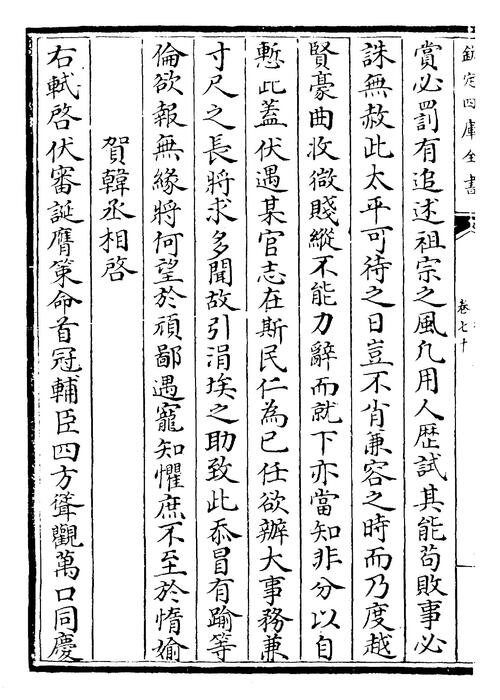 欽定四庫全書
卷七十
賞必罰有追述祖宗之風凡用人歴試其能苟敗事必
誅無赦此太平可待之日豈不肖兼容之時而乃度越
賢豪曲收微賤縱不能力辭而就下亦當知非分以自
慙此蓋伏遇某官志在斯民仁為已任欲辦大事務兼
寸尺之長將求多聞故引涓埃之助致此忝冒有踰等
倫欲報無緣將何望於頑鄙遇寵知懼庶不至於惰媮
賀韓丞相啓
右軾啓伏審誕膺策命首冠輔臣四方聳觀萬口同慶